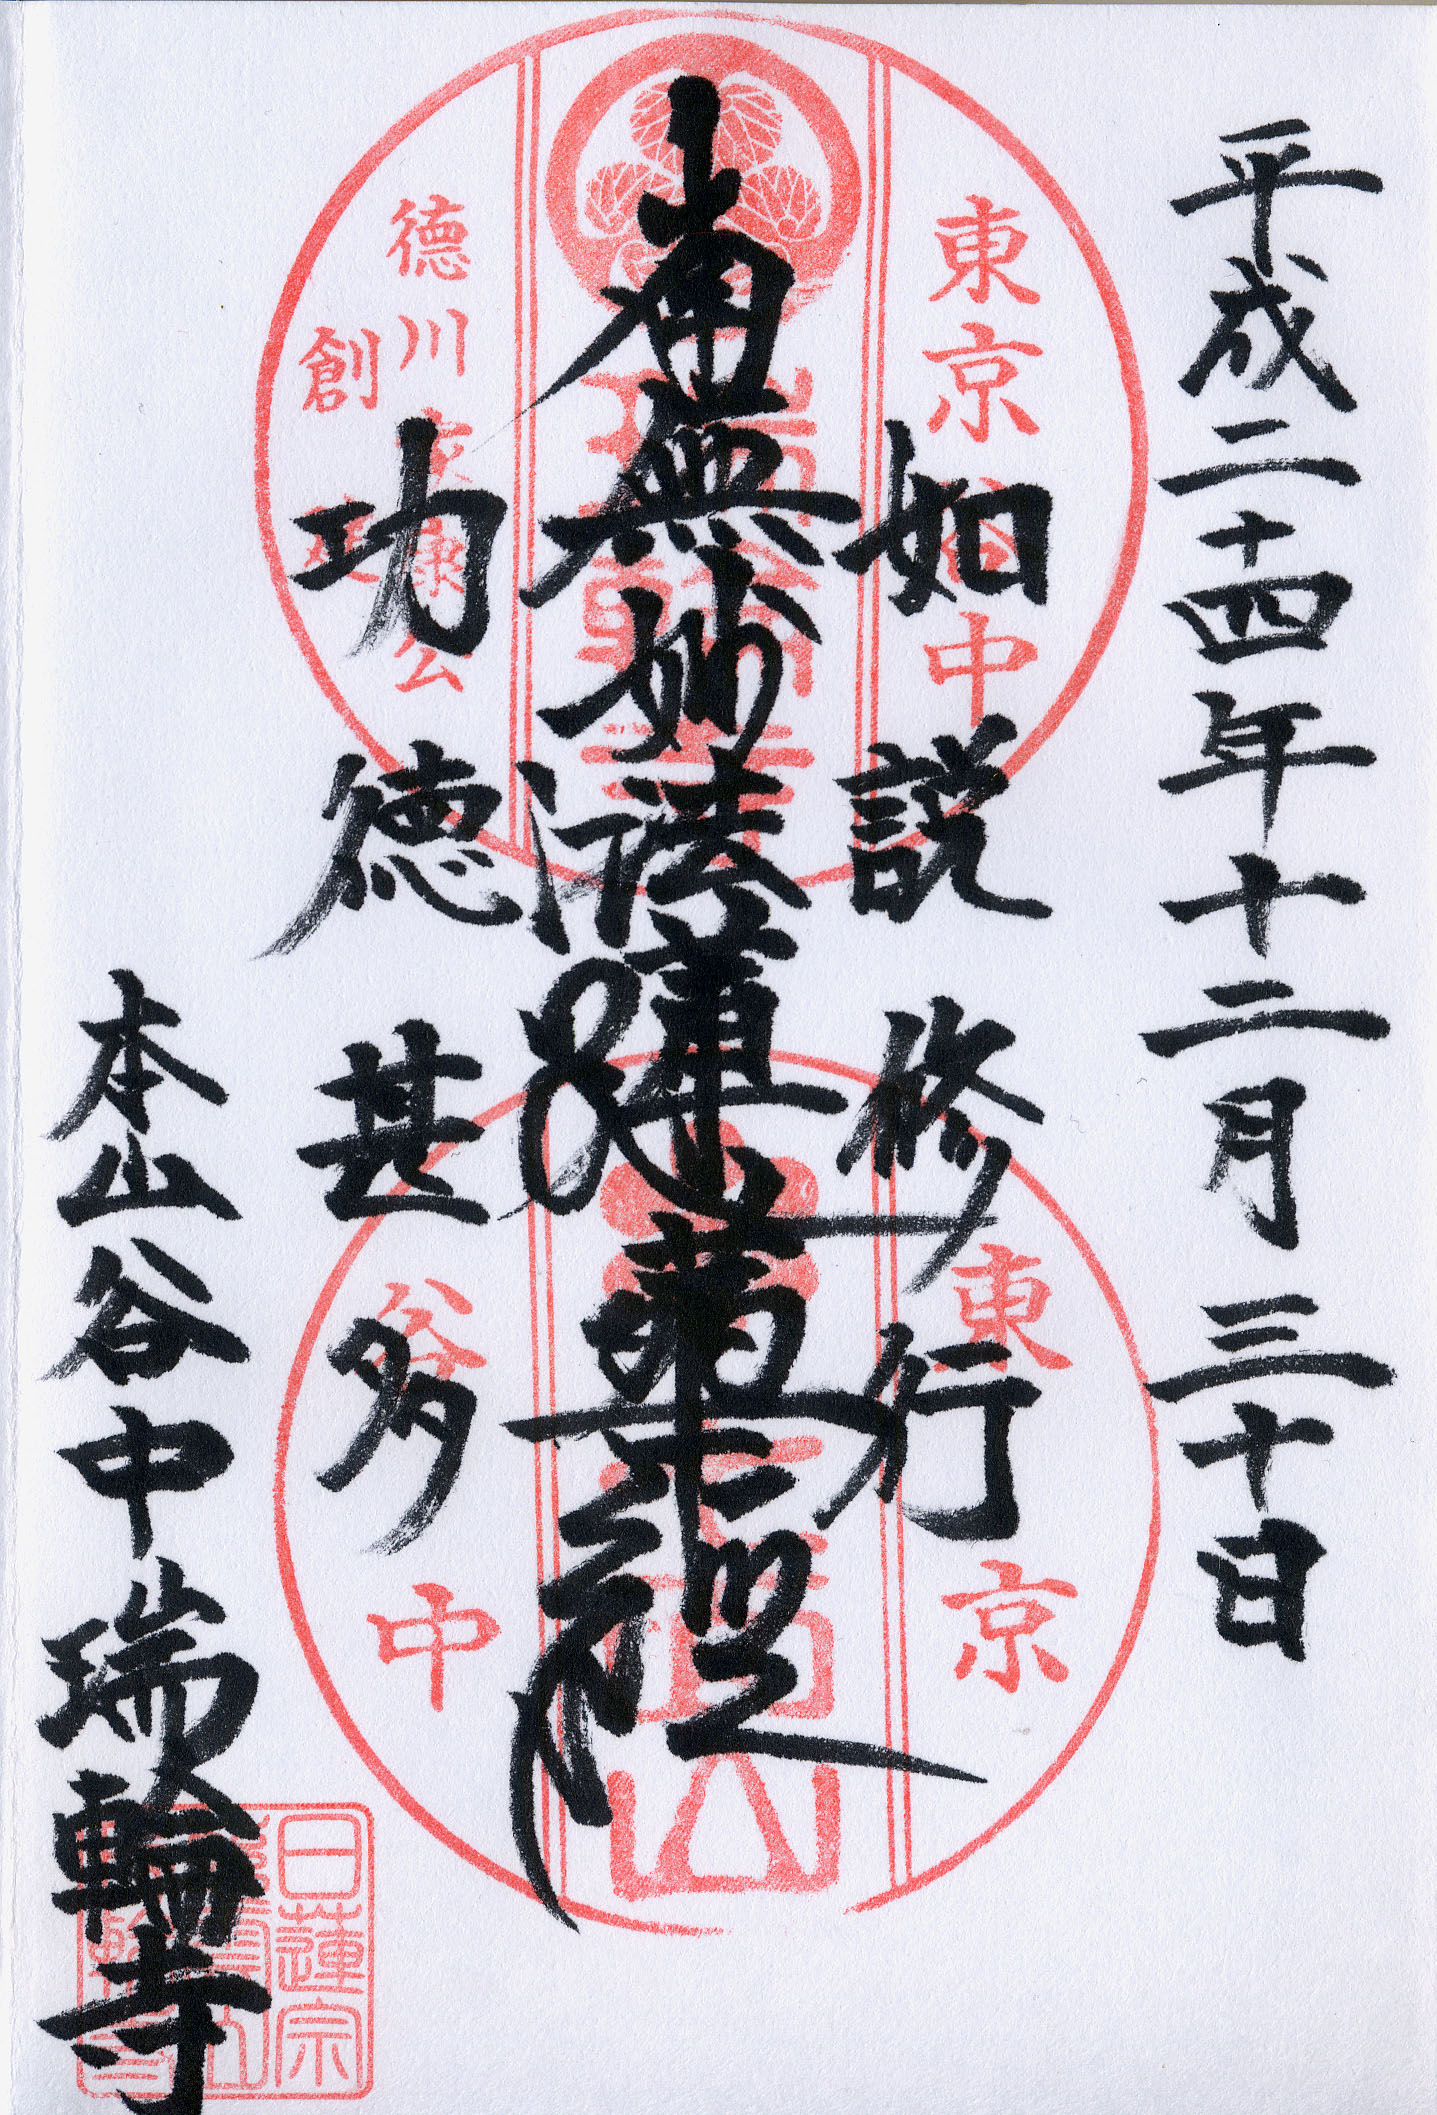 平成二十四年十二月三十日
如説修行
南無妙法蓮華経
功徳甚多
本山谷中瑞輪寺
東京谷中
瑞輪寺
徳川家康公
創建
東京
山
谷中
日蓮宗